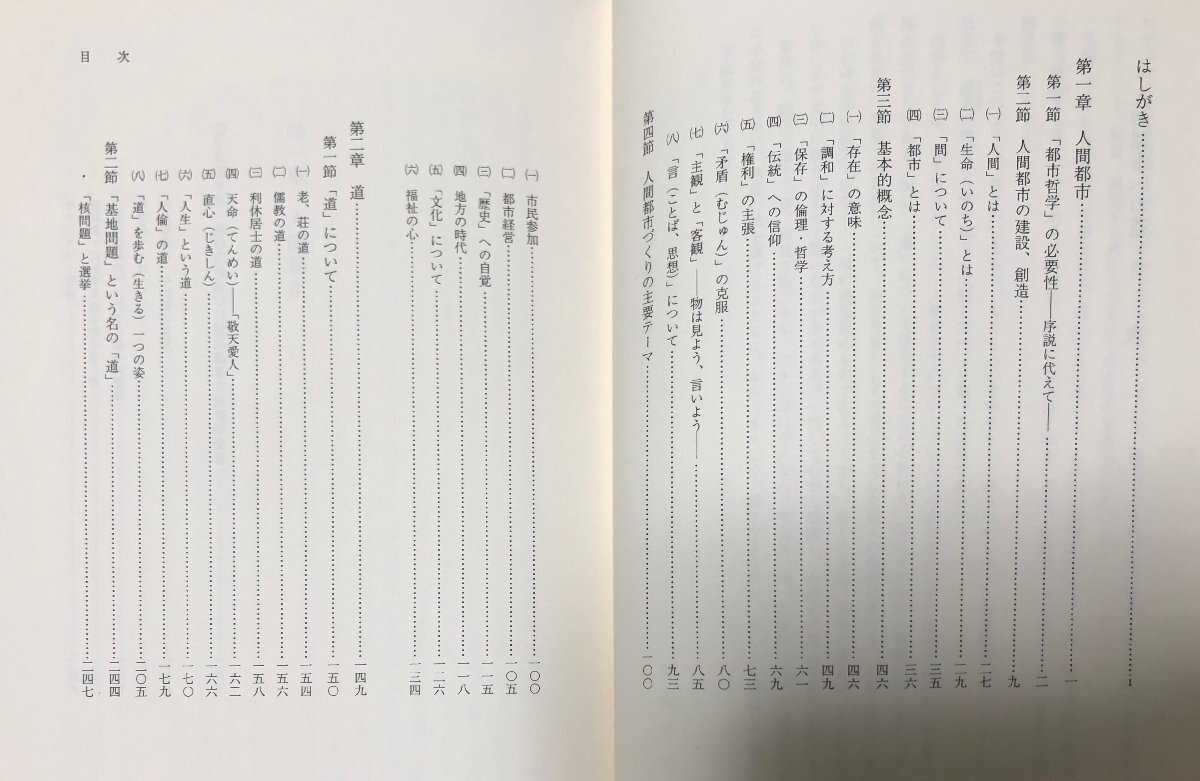 はしがき……i
第一章 人間都市……一
第一節 「都市哲学」の必要性――序説に代えて――……二
第二節 人間都市の建設、創造……九
㈠ 「人間」とは……二七
㈡ 「生命(いのち)」とは……二九
㈢ 「間」について……三五
㈣ 「都市」とは……三六
第三節 基本的概念……四六
㈠ 「存在」の意味……四六
㈡ 「調和」に対する考え方……四九
㈢ 「保存」の倫理・哲学……六一
㈣ 「伝統」への信仰……六九
㈤ 「権利」の主張……七三
㈥ 「矛盾(むじゅん)」の克服……八〇
㈦ 「主観」と「客観」――物は見よう、言いよう――……八五
㈧ 「言(ことば、思想)」について……九三
第四節 人間都市づくりの主要テーマ……一〇〇
目次
㈠ 市民参加……一〇〇
㈡ 都市経営……一〇五
㈢ 「歴史」への自覚……一一五
㈣ 地方の時代……一一八
㈤ 「文化」について……一二六
㈥ 福祉の心……一三四
第二章 道……一四九
第一節 「道」について……一五〇
㈠ 老、荘の道……一五四
㈡ 儒教の道……一五六
㈢ 利休居士の道……一五八
㈣ 天命(てんめい)――「敬天愛人」……一六二
㈤ 直心(じきしん)……一六六
㈥ 「人生」という道……一七〇
㈦ 「人倫」の道……一七九
㈧ 「道」を歩む(生きる)一つの姿……二〇五
第二節 「基地問題」という名の「道」……二四四
・ 「核問題」と選挙……二四七